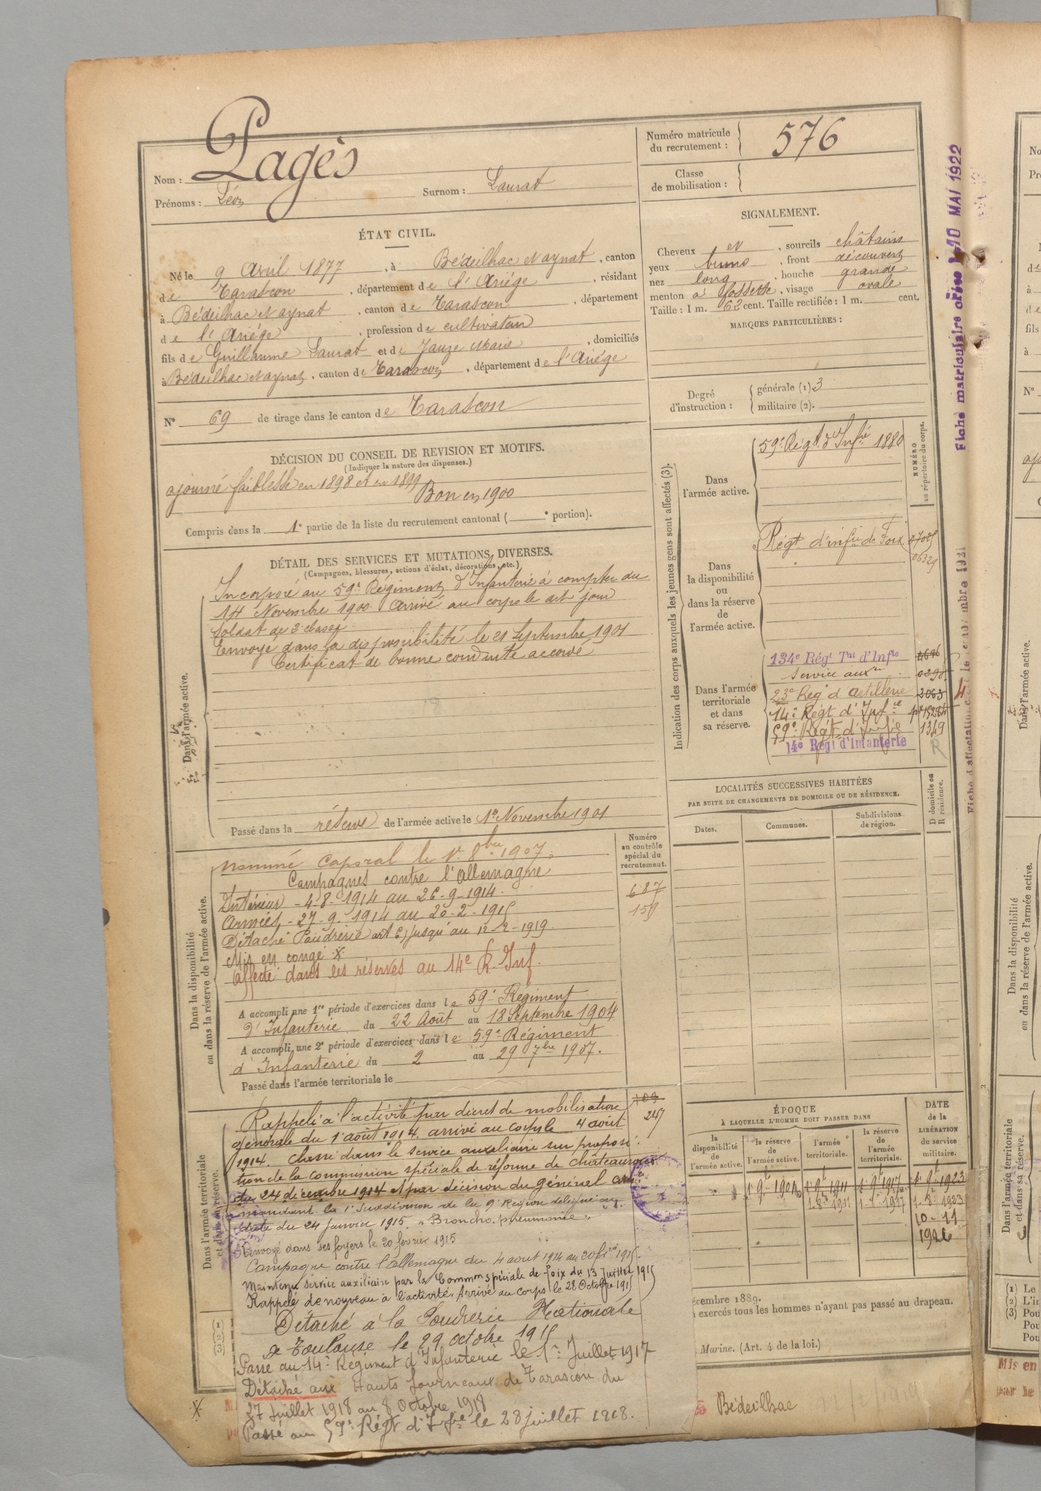 Nom : Pagès
Prénoms : Léon Surnom : Laurat
Numéro matricule du recrutement : 576
Classe de mobilisation :
ÉTAT CIVIL.
Né le 9 Avril 1877, à Bédeilhac et Aynat, canton
de Tarascon, département de l'Ariége, résidant
à Bédeilhac et Aynat, canton de Tarascon, département
de l'Ariége, profession de cultivateur
fils de Guillaume Laurat et de Jauze Marie, domiciliés
à Bédeilhac et Aynat, canton de Tarascon, département de l'Ariége
N° 69 de tirage dans le canton de Tarascon
SIGNALEMENT.
Cheveux et, sourcils châtains
yeux bruns, front découvert
nez long, bouche grande
menton à fossette, visage ovale
Taille : 1 m. 62 cent. Taille rectifiée : 1 m. cent.
MARQUES PARTICULIÈRES :
Degré d'instruction : générale (1) 3
militaire (2).
DÉCISION DU CONSEIL DE REVISION ET MOTIFS.
(Indiquer la nature des dispenses.)
ajourné faiblesse en 1898 et en 1899
Bon en 1900
Compris dans la 1e partie de la liste du recrutement cantonal ( e portion).
DÉTAIL DES SERVICES ET MUTATIONS DIVERSES.
(Campagnes, blessures, actions d'éclat, décorations, etc.)
Dans l'armée active.
Incorporé au 59e Régiment d'Infanterie à compter du
14 Novembre 1900 Arrivé au corps le dit jour
Soldat de 2 classe
Envoyé dans la disponibilité le 21 Septembre 1901
Certificat de bonne conduite accordé
Passé dans la réserve de l'armée active le 1er Novembre 1901
Numéro au contrôle spécial du recrutement.
Dans la disponibilité ou dans la réserve de l'armée active.
Nommé Caporal le 1er 8bre 1907.
Campagnes contre l'Allemagne
Intérieur - 4-8-1914 au 26-9-1914
Armées - 27-9-1914 au 20-2-1915
Détaché Poudrerie jusqu'au 1e-2-1919
Mis en congé
687
159
Affecté dans les réserves au 14e R. Inf.
A accompli une 1re période d'exercices dans le 59e Régiment
d'Infanterie du 22 Août au 18 Septembre 1904
A accompli une 2e période d'exercices dans le 59e Régiment
d'Infanterie du 2 au 29 7bre 1907.
Passé dans l'armée territoriale le
Dans l'armée territoriale et dans sa réserve.
Rappelé à l'activité par décret de mobilisation
générale du 1 août 1914 arrivé au corps le 4 août
1914. Classé dans le service auxiliaire sur proposi-
tion de la commission spéciale de réforme de Châteauroux
du 24 décembre 1914 et par décision du général com-
mandant la 1e Subdivision de la 9e Région délégué en
date du 24 janvier 1915. "Broncho pneumonie"
Renvoyé dans ses foyers le 20 février 1915
Campagne contre l'Allemagne du 4 août 1914 au 20 fev 1915
Maintenu service auxiliaire par la Common spéciale de Foix du 13 Juillet 1915
Rappelé de nouveau à l'activité. Arrivé au corps le 28 Octobre 1915
Détaché à la Poudrerie Nationale
de Toulouse le 29 octobre 1915
Passé au 14e Régiment d'Infanterie le 1er Juillet 1917
Détaché aux Hauts fourneaux de Tarascon du
27 Juillet 1918 au 8 Octobre 1918
Passé au 59e Régt d'Infie le 28 juillet 1918.
247
Indication des corps auxquels les jeunes gens sont affectés (3).
NUMÉRO au répertoire du corps.
Dans l'armée active.
59e Régt d'Infie 1880
Dans la disponibilité ou dans la réserve de l'armée active.
Régt d'infie de Foix
Dans l'armée territoriale et dans sa réserve.
134e Régt Tal d'Infie
Service auxre
23e Régt d'artillerie 3063
14e Régt d'Infie
59e Régt d'Infie 1349
14e Régt d'Infanterie
R
LOCALITÉS SUCCESSIVES HABITÉES
PAR SUITE DE CHANGEMENTS DE DOMICILE OU DE RÉSIDENCE.
Dates. Communes. Subdivisions de région. D domicile ou R résidence.
ÉPOQUE
À LAQUELLE L'HOMME DOIT PASSER DANS
la disponibilité de l'armée active. la réserve de l'armée active. l'armée territoriale. la réserve de l'armée territoriale.
DATE de la LIBÉRATION du service militaire.
10-11
1926
décembre 1889.
exercés tous les hommes n'ayant pas passé au drapeau.
Marine. (Art. 4 de la loi.)
Bédeilhac
Fiche matriculaire créée le 10 MAI 1922
Mis en
par le